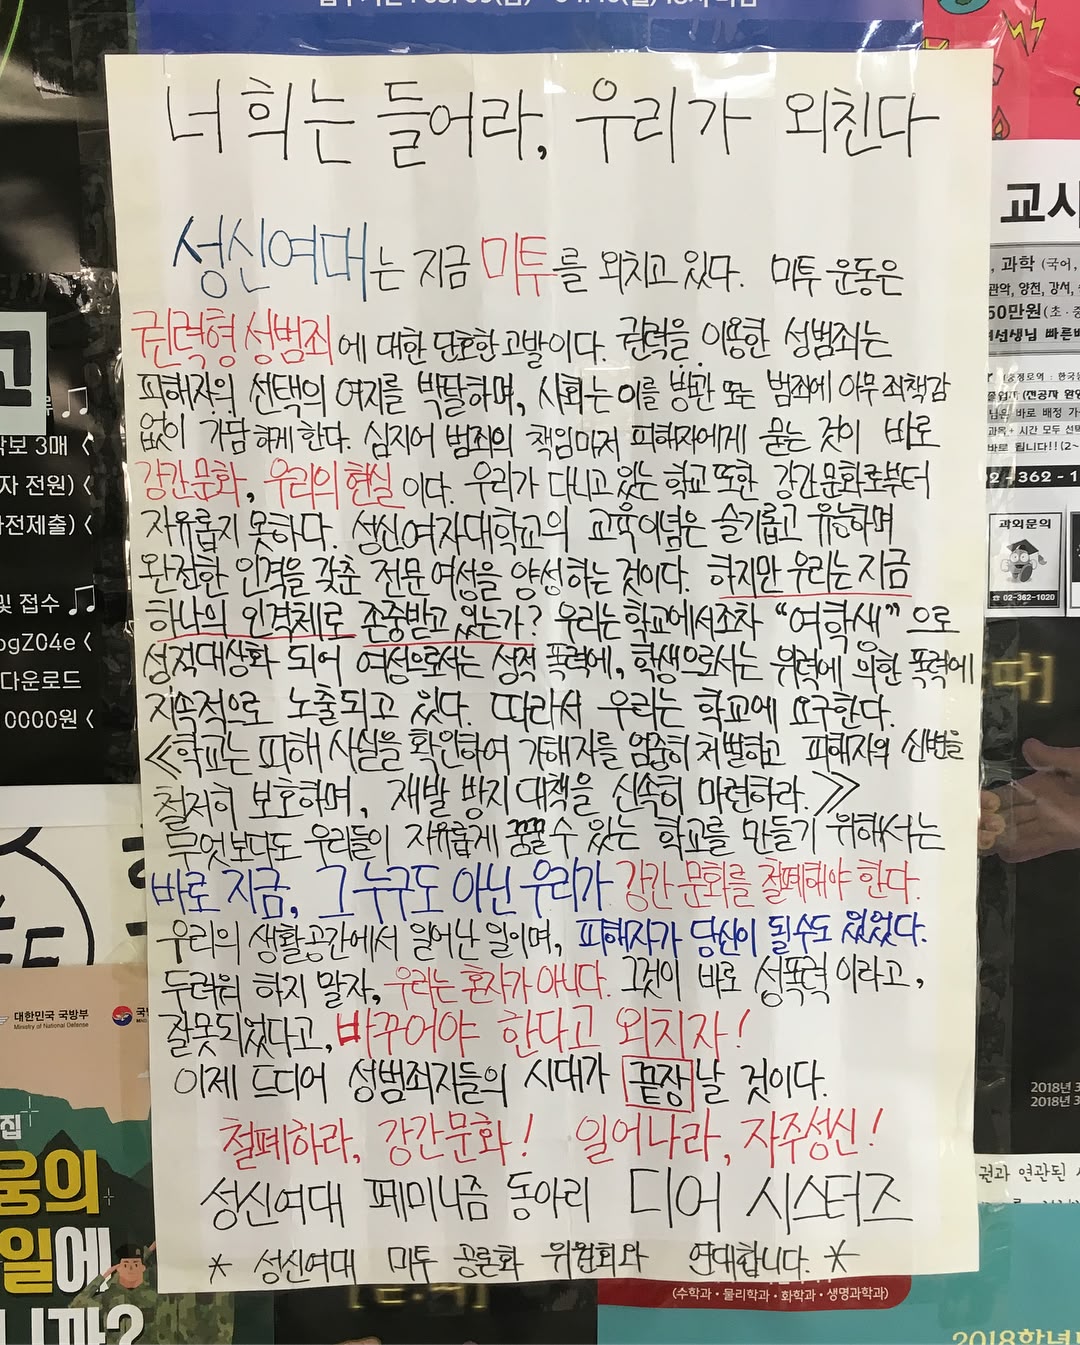 너희는 들어라, 우리가 외친다
성신여대는 지금 미투를 외치고 있다. 미투 운동은
권력형 성범죄에 대한 단호한 고발이다. 권력을 이용한 성범죄는
피해자의 선택의 여지를 박탈하며, 사회는 이를 방관 또는 범죄에 아무 죄책감
없이 가담하게 한다. 심지어 범죄의 책임마저 피해자에게 묻는 것이 바로
강간문화, 우리의 현실이다. 우리가 다니고 있는 학교 또한 강간문화로부터
자유롭지 못하다. 성신여자대학교의 교육이념은 슬기롭고 유능하며
완전한 인격을 갖춘 전문여성을 양성하는 것이다. 하지만 우리는 지금
하나의 인격체로 존중받고 있는가? 우리는 학교에서조차 “여학생”으로
성적대상화 되어 여성으로서는 성적 폭력에, 학생으로서는 위력에 의한 폭력에
지속적으로 노출되고 있다. 따라서 우리는 학교에 요구한다.
≪학교는 피해 사실을 확인하여 가해자를 엄중히 처벌하고 피해자의 신변을
철저히 보호하며, 재발 방지 대책을 신속히 마련하라.≫
무엇보다도 우리들이 자유롭게 꿈꿀 수 있는 학교를 만들기 위해서는
바로 지금, 그 누구도 아닌 우리가 강간 문화를 철폐해야 한다.
우리의 생활공간에서 일어난 일이며, 피해자가 당신이 될 수도 있었다.
두려워 하지 말자, 우리는 혼자가 아니다. 그것이 바로 성폭력이라고,
잘못되었다고, 바꾸어야 한다고 외치자!
이제 드디어 성범죄자들의 시대가 끝장날 것이다.
철폐하라, 강간문화! 일어나라, 자주성신!
성신여대 페미니즘 동아리 디어 시스터즈
* 성신여대 미투 공론화 위원회와 연대합니다. *
고
악보 3매 <
자 전원) <
사전제출) <
및 접수
ogZ04e <
다운로드
0000원 <
대한민국 국방부
Ministry of National Defense
집
웅의
일에
니까?
교사
, 과학 (국어,
관악, 양천, 강서,
50만원(초·중
선생님 빠른배
02-362-1
과외문의
☎ 02-362-1020
2018년 3
2018년 3
권과 연관된
(수학과·물리학과·화학과·생명과학과)
2018학년